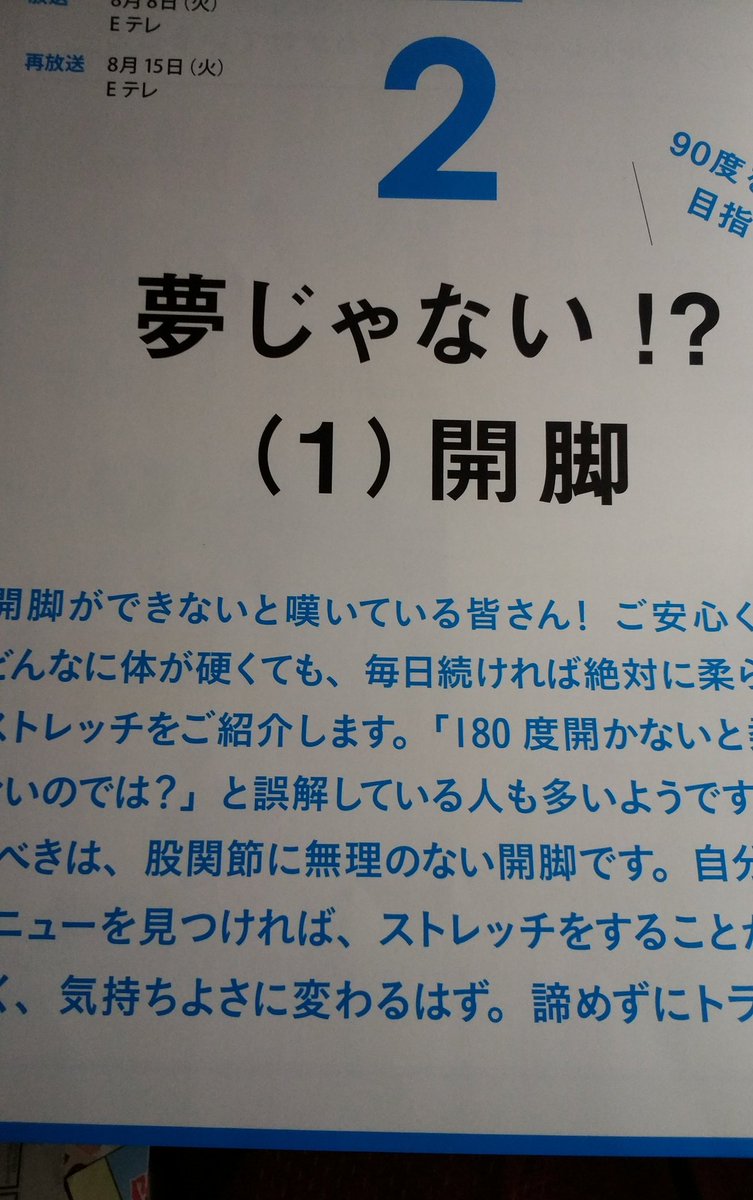 放送 8月8日（火）
Eテレ
再放送 8月15日（火）
Eテレ
2
90度
目指
夢じゃない!?
（1）開脚
開脚ができないと嘆いている皆さん！ご安心く
どんなに体が硬くても、毎日続ければ絶対に柔ら
ストレッチをご紹介します。「180度開かないと
いのでは？」と誤解している人も多いようです
べきは、股関節に無理のない開脚です。自分
ニューを見つければ、ストレッチをすることが
く、気持ちよさに変わるはず。諦めずにトラ